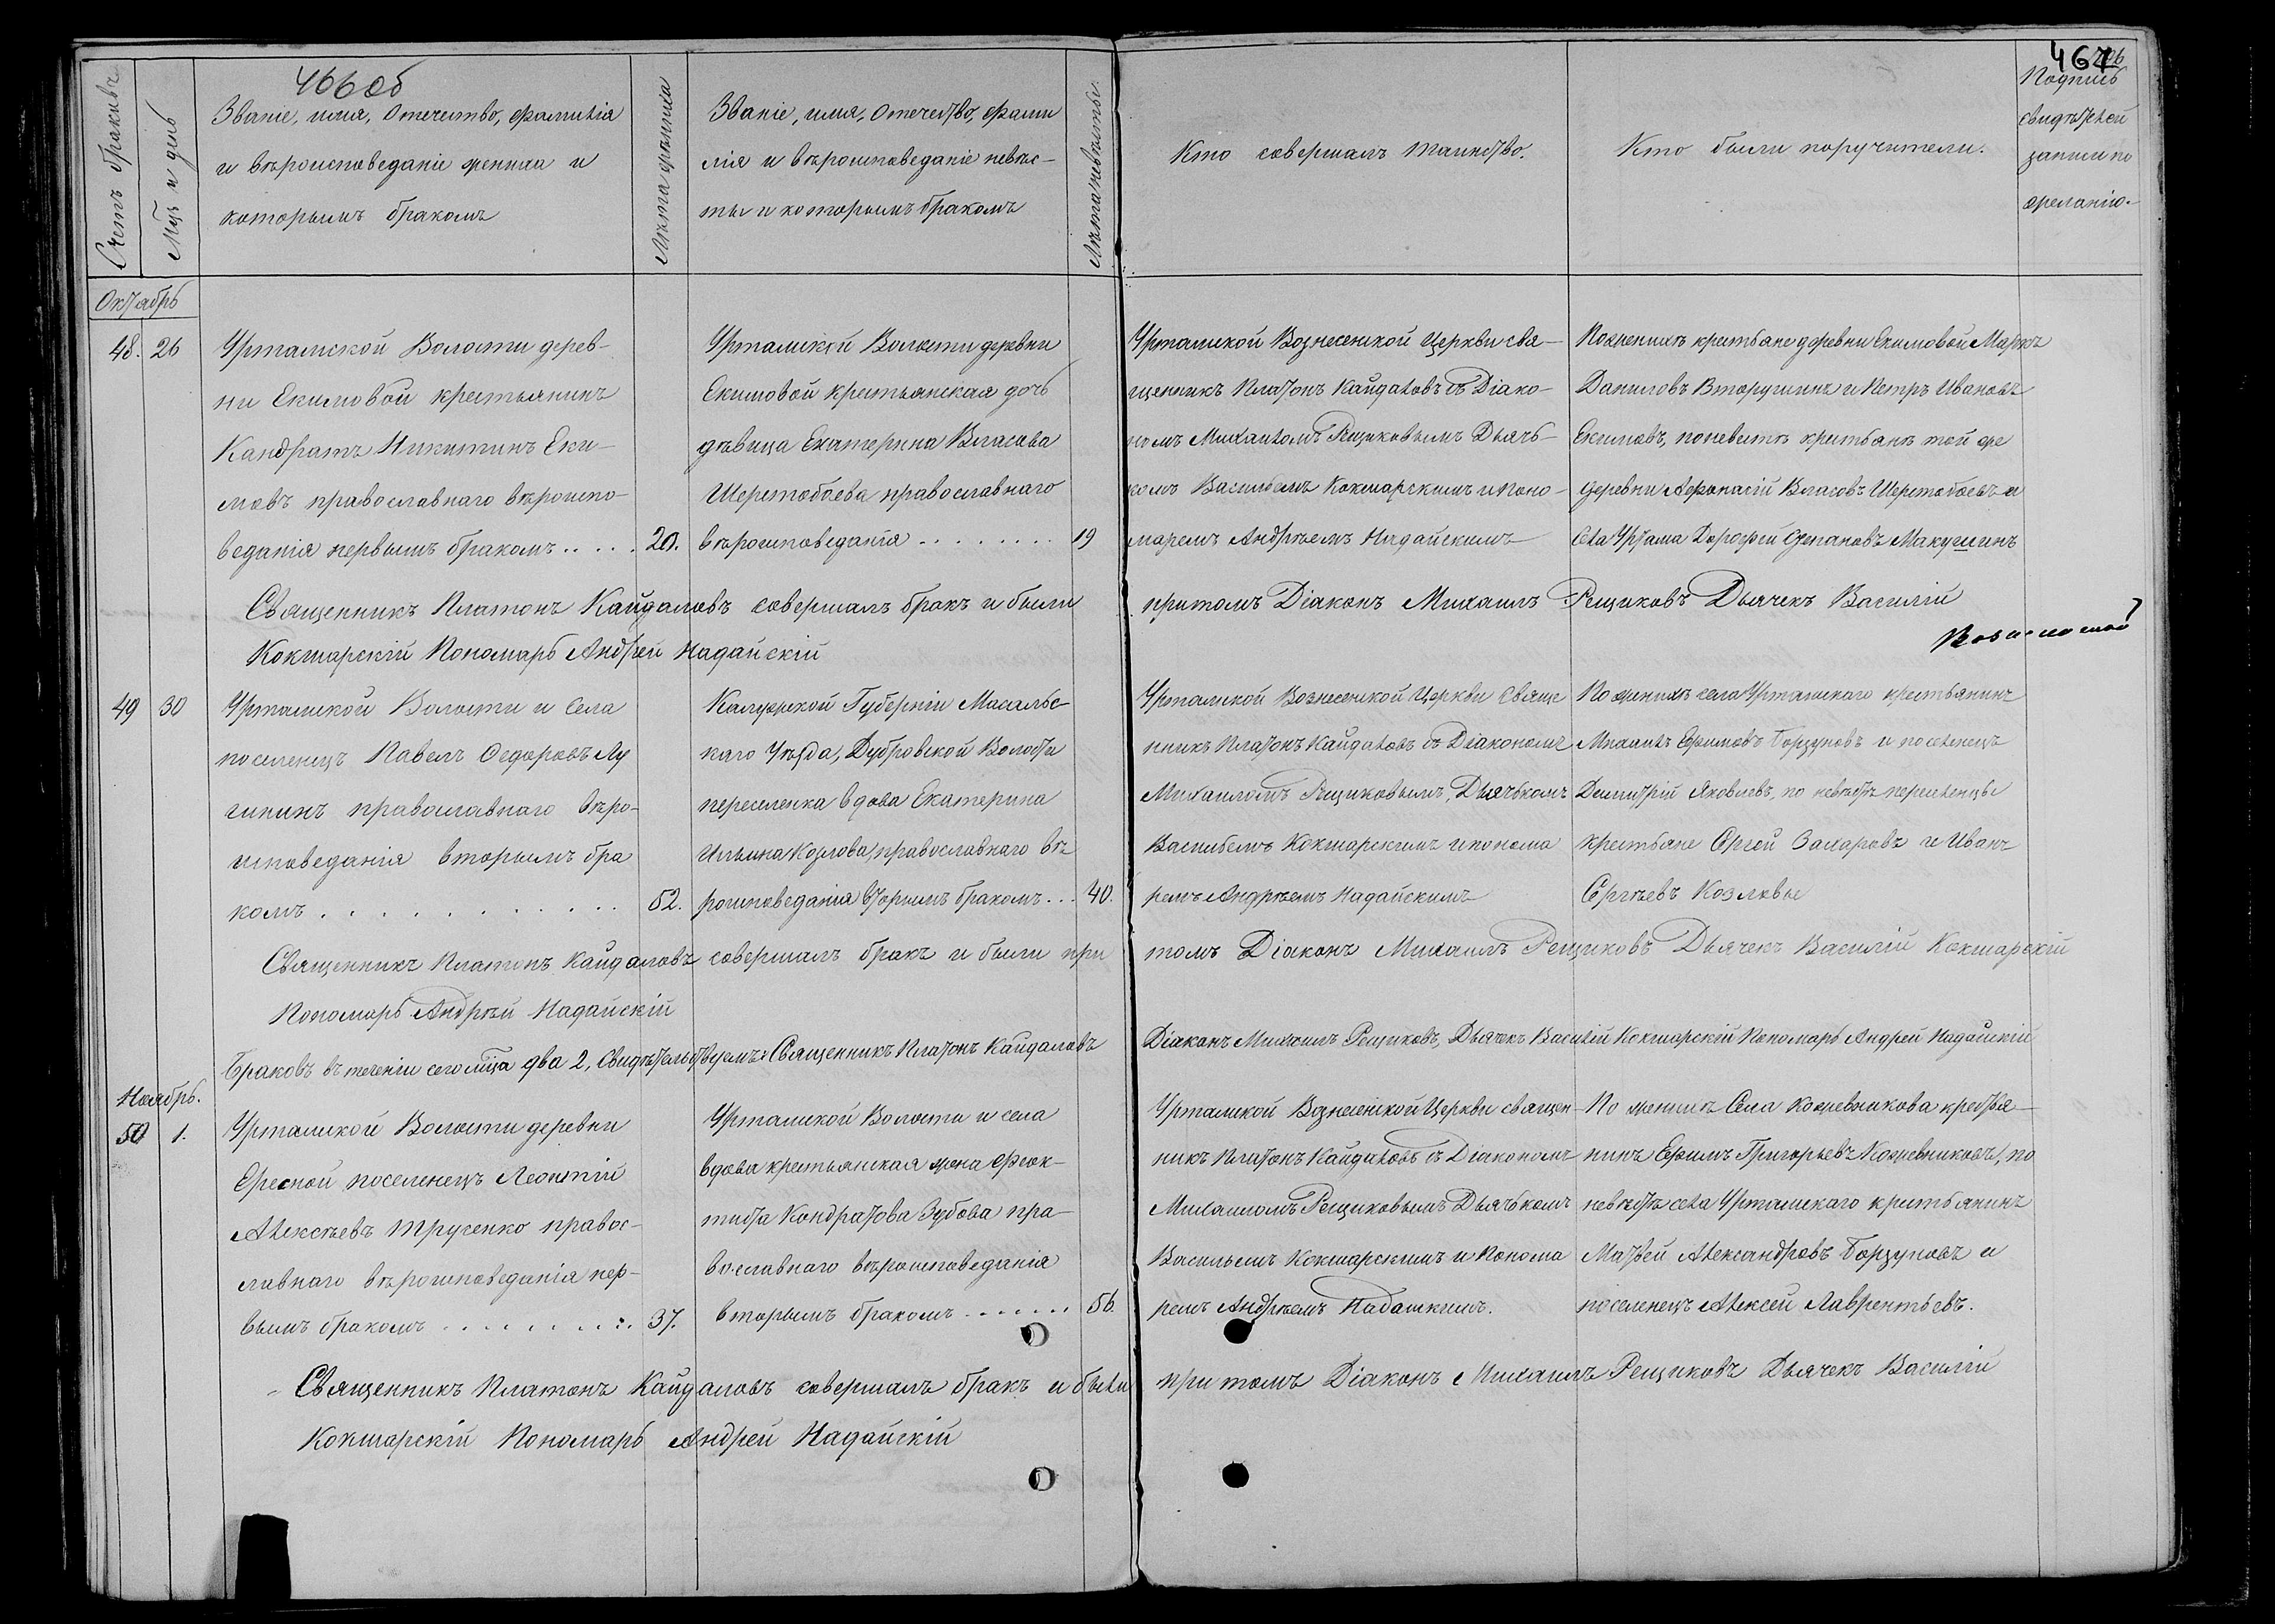 466 об
467
Счетъ браковъ
Мц҃ъ и день
Званіе, имя, отечество, фамилія
и вѣроисповеданіе жениха и
которымъ бракомъ
Лѣта жениха
Званіе, имя, отечество, фами
лія и вѣроисповеданіе невѣс-
ты и которымъ бракомъ
Лѣта невѣсты
Кто совершалъ таинство.
Кто были поручители.
Подпись
свидѣтелей
записи по
желанію.
Октябрь
48. 26
Уртамской Волости дерев-
ни Екимовой крестьянинъ
Кандратъ Никитинъ Еки-
мовъ православнаго вѣроиспо-
веданія первымъ бракомъ . . . . . 20.
Уртамской Волости деревни
Екимовой крестьянская дочь
дѣвица Екатерина Власова
Шерстобоева православнаго
вѣроисповеданія . . . . . . . . 19
Уртамской Вознесенской Церкви свя-
щенникъ Платонъ Кайдаловъ съ Діако-
номъ Михаиломъ Рещиковымъ Дьячь-
комъ Васильемъ Кокшарскимъ и Поно-
маремъ Андрѣемъ Надайскимъ
По женихѣ крестьяне деревни Екимовой Маркъ
Даниловъ Вторушинъ и Петръ Ивановъ
Екимовъ, по невѣстѣ крестьянѣ той же
деревни Афонасій Власовъ Шерстобоевъ и
Села Уртама Дорофей Степановъ Макушинъ
Священникъ Платонъ Кайдаловъ совершалъ бракъ и были притомъ Діаконъ Михаилъ Рещиковъ Дьячекъ Василій
Кокшарскій Пономарь Андрей Надайскій
49 30
Уртамской Волости и Села
поселенецъ Павелъ Федоровъ Лу
гининъ православнаго вѣро-
исповеданія вторымъ бра
комъ . . . . . . . . . . . 52.
Калужской Губерніи Масальс-
каго Уѣзда, Дубровской Волости
переселенка вдова Екатерина
Ильина Козлова, православнаго вѣ
роисповеданія вторымъ бракомъ . . . 40.
Уртамской Вознесенской Церкви Свяще
нникъ Платонъ Кайдаловъ съ Діакономъ
Михаиломъ Рещиковымъ, Дьячькомъ
Васильемъ Кокшарскимъ и понома
ремъ Андрѣемъ Надайскимъ
По женихѣ села Уртамскаго крестьянинъ
Михаилъ Ефимовъ Борзуновъ и поселенецъ
Димитрій Яковлевъ, по невѣстѣ переселенцы
крестьяне Сргей Захаровъ и Иванъ
Сергѣевъ Козловы
Священникъ Платонъ Кайдаловъ совершалъ бракъ и были при томъ Діаконъ Михаилъ Рещиковъ Дьячекъ Василій Кокшарскій
Пономарь Андрѣй Надайскій
Браковъ въ теченіи сего мц҃а два 2, Свидѣтельствуемъ: Священникъ Платонъ Кайдаловъ Діаконъ Михаилъ Рещиковъ, Дьячекъ Василій Кокшарскій Пономарь Андрей Надайскій
Ноябрь.
50 1.
Уртамской Волости деревни
Ересной поселенецъ Леонтій
Алексѣевъ Трусенко правос-
лавнаго вѣроисповеданія пер-
вымъ бракомъ . . . . . . . . . 37.
Уртамской Волости и села
вдова крестьянская жена Феок-
тиста Кондратова Зубова пра-
вославнаго вѣроисповеданія
вторымъ бракомъ . . . . . . . 56.
Уртамской Вознесенской Церкви священ-
никъ Платонъ Кайдаловъ съ Діакономъ
Михаиломъ Рещиковымъ Дьячькомъ
Васильемъ Кокшарскимъ и Понома
ремъ Андрѣемъ Надаискимъ.
По женихѣ Села Кожевникова крестья-
нинъ Ефимъ Григорьевъ Кожевниковъ, по
невѣстѣ села Уртамскаго крестьянинъ
Матвей Александровъ Борзуновъ и
поселенецъ Алексей Лаврентьевъ.
Священникъ Платонъ Кайдаловъ совершалъ бракъ и были при томъ Діаконъ Михаилъ Рещиковъ Дьячекъ Василій
Кокшарскій Пономарь Андрей Надайскій